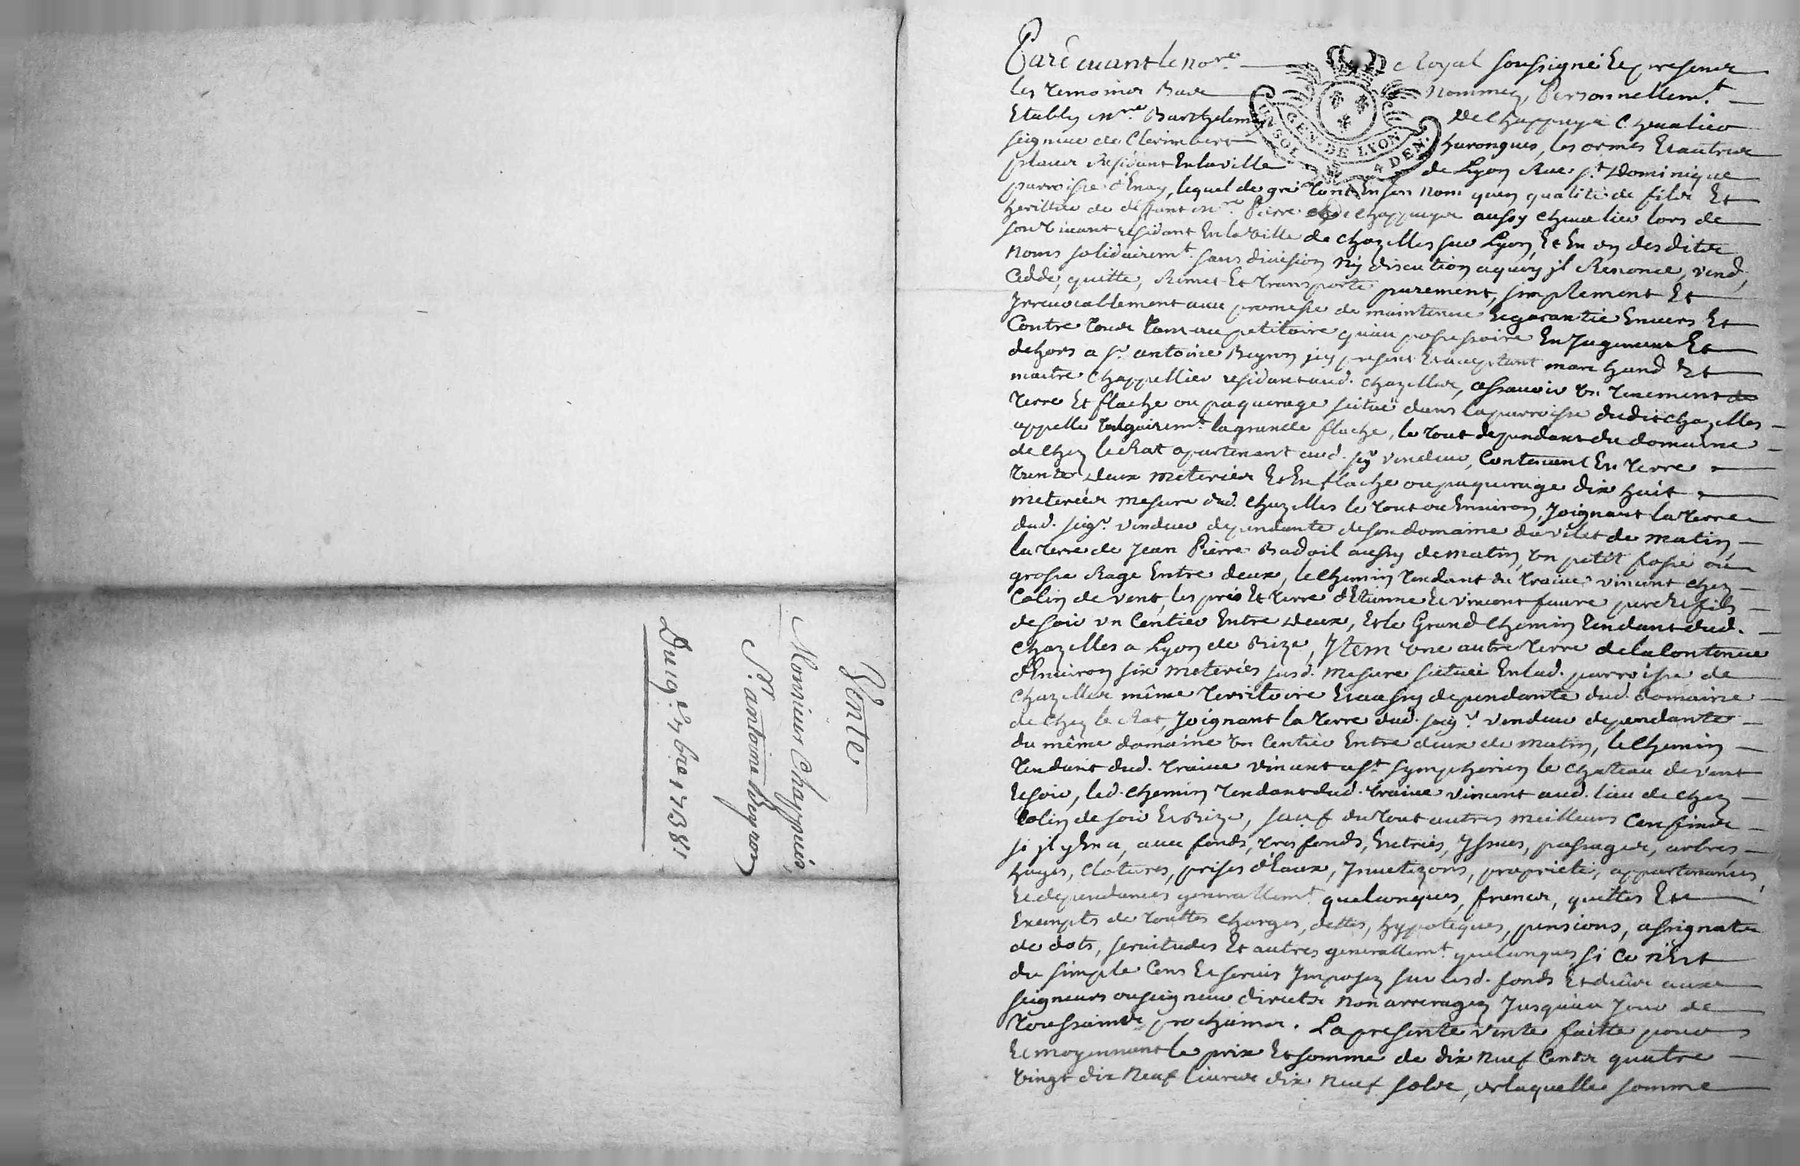 Vente
Monsieur Chappuis,
Sr. antoine Beyron
Du 19e. 7bre 1738
Pardevant le nore. Royal soussigné Et presents
les temoins Bas nommez, Personnellemt.
Etably mre. Barthelemy de Chappuys Chevalier
seigneur de Clerimbert harongues, les ormes Et autres
places Residant En la ville de Lyon Rue st. Dominique
parroisse d'Enay, lequel de gré tant En son nom qu'en qualité de fils Et
heritier de deffunt mre. Pierre de Chappuys aussy chevalier lors de
son vivant residant En la ville de chazelles sur Lyon, Et En un desdits
Noms solidairemt. sans division Ny discution aquoy jl Renonce, vend,
Cedde, quitte, Remet Et transporte purement, simplement Et
Irrevocablement avec promesse de maintenue Et garantie Envers Et
Contre tous tant au petitoire qu'au possessoire En Jugement Et
dehors a sr. antoine Beyron jcy present Et acceptant marchand Et
maitre Chappellier residant aud. chazelles, assavoir un tenement de
terre Et flache ou paquerage scitué dans la parroisse dudit chazelles
appellé vulgairemt. la grande flache, le tout dependant du domaine
de chez le Rat apartenant aud. sgr vendeur, Contenant En terre
trente deux meterées Et En flache ou paquerage dix huit
meterées mesure dud. chazelles le tout ou Environ, Joignant la terre
dud. seigr. vendeur dependante de son domaine du vilet de matin,
la terre de Jean Pierre Badoil aussy de matin, un petit fossé ou
grosse Rage Entre deux, le chemin tendant du traive vincent chez
Colin de vent, les prés Et terre d'Etienne Et vincent faure pere Et fils
de soir un Centier Entre deux, Et le Grand Chemin tendant dud.
Chazelles a Lyon de Bize, Jtem une autre terre de la Contenue
d'Environ six meterées susd. mesure scituée En lad. parroisse de
Chazelles même territoire Et aussy dependante dud. domaine
de chez le Rat, Joignant la terre dud. seigr. vendeur dependante
du même domaine un Centier Entre deux de matin, le Chemin
tendant dud. traive vincent a st. symphorien le chateau de vent
Et soir, led. chemin tendant dud. traive vincent aud. lieu de chez
Colin de soir Et Bize, sauf du tout autres meilleurs Confins
si jl y En a, avec fonds, tres fonds, Entrées, Issues, passages, arbres
hayes, Clotures, prises d'Eaux, proprieté, appartenances,
Et dependances generallemt. quelconques, francs, quittes Et
Exempts de touttes charges, dettes, hypoteques, pensions, assignats
de dots, servitudes Et autres generallemt. quelconques si Ce n'Est
du simple Cens Et servis Imposez sur lesd. fonds Et deus aux
seigneurs ou seigneur directs Non arreragez Jusqu'au Jour de
toussaints prochaines. La presente vente faitte pour
Et moyennant le prix Et somme de dix Neuf Cents quatre
vingt dix Neuf livres dix Neuf sols, laquelle somme
GEN. DE LYON
UN SOL 4 DEN.